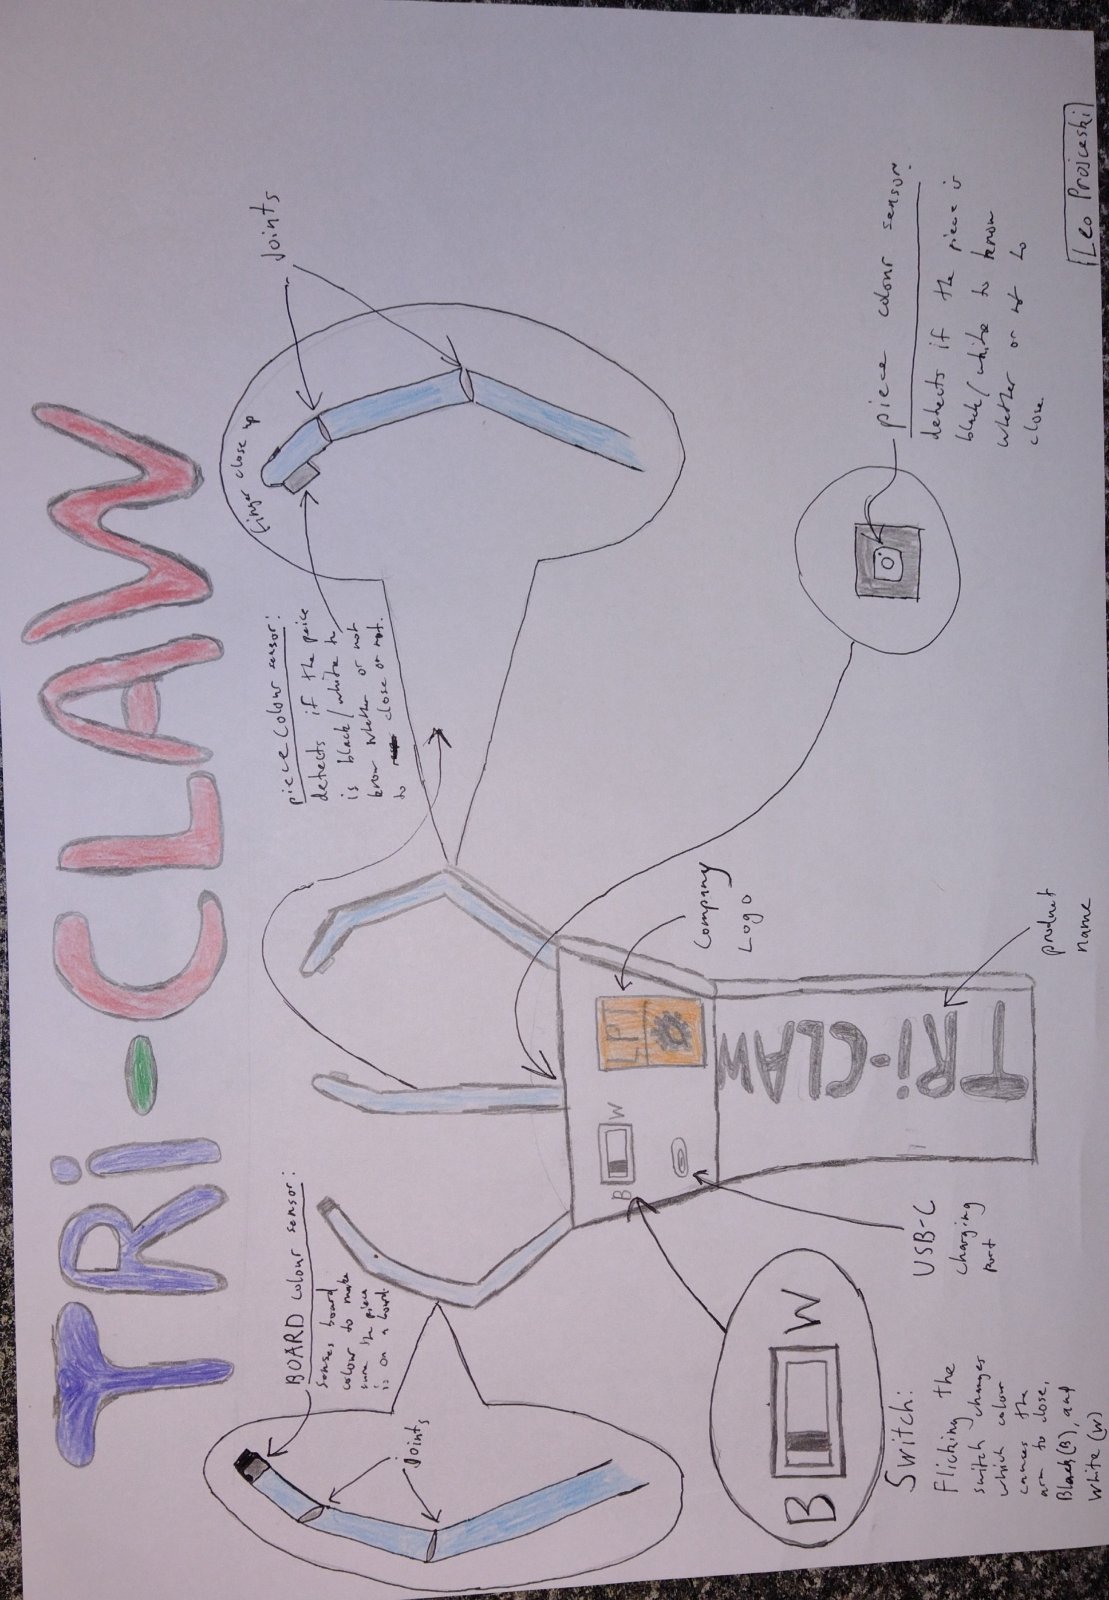 TRi-CLAW
BOARD colour sensor:
Senses board
colour to make
sure the piece
is on a board.
Joints
piece colour sensor:
detects if the peice
is black/white to
know whether or not
to close or not.
finger close up
Joints
B
W
LPT
Company
Logo
TRi-CLAW
B
W
Switch:
Flicking the
switch changes
which colour
causes the
arm to close,
Black(B), and
White (W)
USB-C
charging
port
product
name
piece colour sensor:
detects if the piece is
black/white to know
whether or not to
close.
Leo Projceski